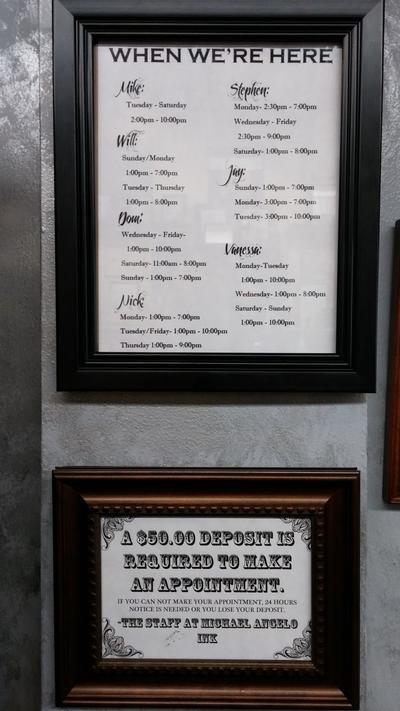 WHEN WE'RE HERE
Mike:
Tuesday - Saturday
2:00pm - 10:00pm
Will:
Sunday/Monday
1:00pm - 7:00pm
Tuesday - Thursday
1:00pm - 8:00pm
Dom:
Wednesday - Friday-
1:00pm - 10:00pm
Saturday- 11:00am - 8:00pm
Sunday - 1:00pm - 7:00pm
Nick
Monday- 1:00pm - 7:00pm
Tuesday/Friday- 1:00pm - 10:00pm
Thursday 1:00pm - 9:00pm
Stephen:
Monday- 2:30pm - 7:00pm
Wednesday - Friday
2:30pm - 9:00pm
Saturday- 1:00pm - 8:00pm
Jay:
Sunday- 1:00pm - 7:00pm
Monday- 3:00pm - 7:00pm
Tuesday- 3:00pm - 10:00pm
Vanessa:
Monday-Tuesday
1:00pm - 10:00pm
Wednesday- 1:00pm - 8:00pm
Saturday - Sunday
1:00pm - 10:00pm
A $50.00 DEPOSIT IS
REQUIRED TO MAKE
AN APPOINTMENT.
IF YOU CAN NOT MAKE YOUR APPOINTMENT, 24 HOURS
NOTICE IS NEEDED OR YOU LOSE YOUR DEPOSIT.
-THE STAFF AT MICHAEL ANGELO
INK